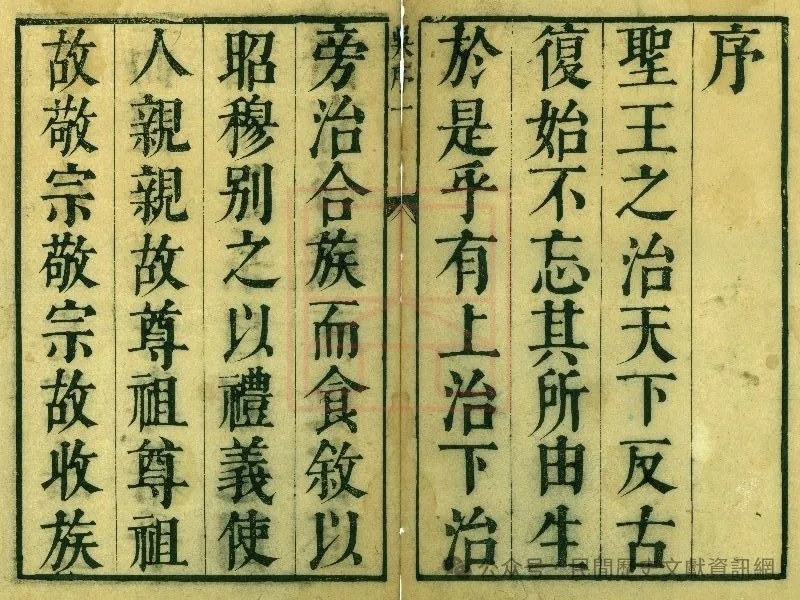 序
聖王之治天下反古
復始不忘其所由生
於是乎有上治下治
旁治合族而食敘以
昭穆别之以禮義使
人親親故尊祖尊祖
故敬宗敬宗故收族
公众号·民間歷史文獻資訊網